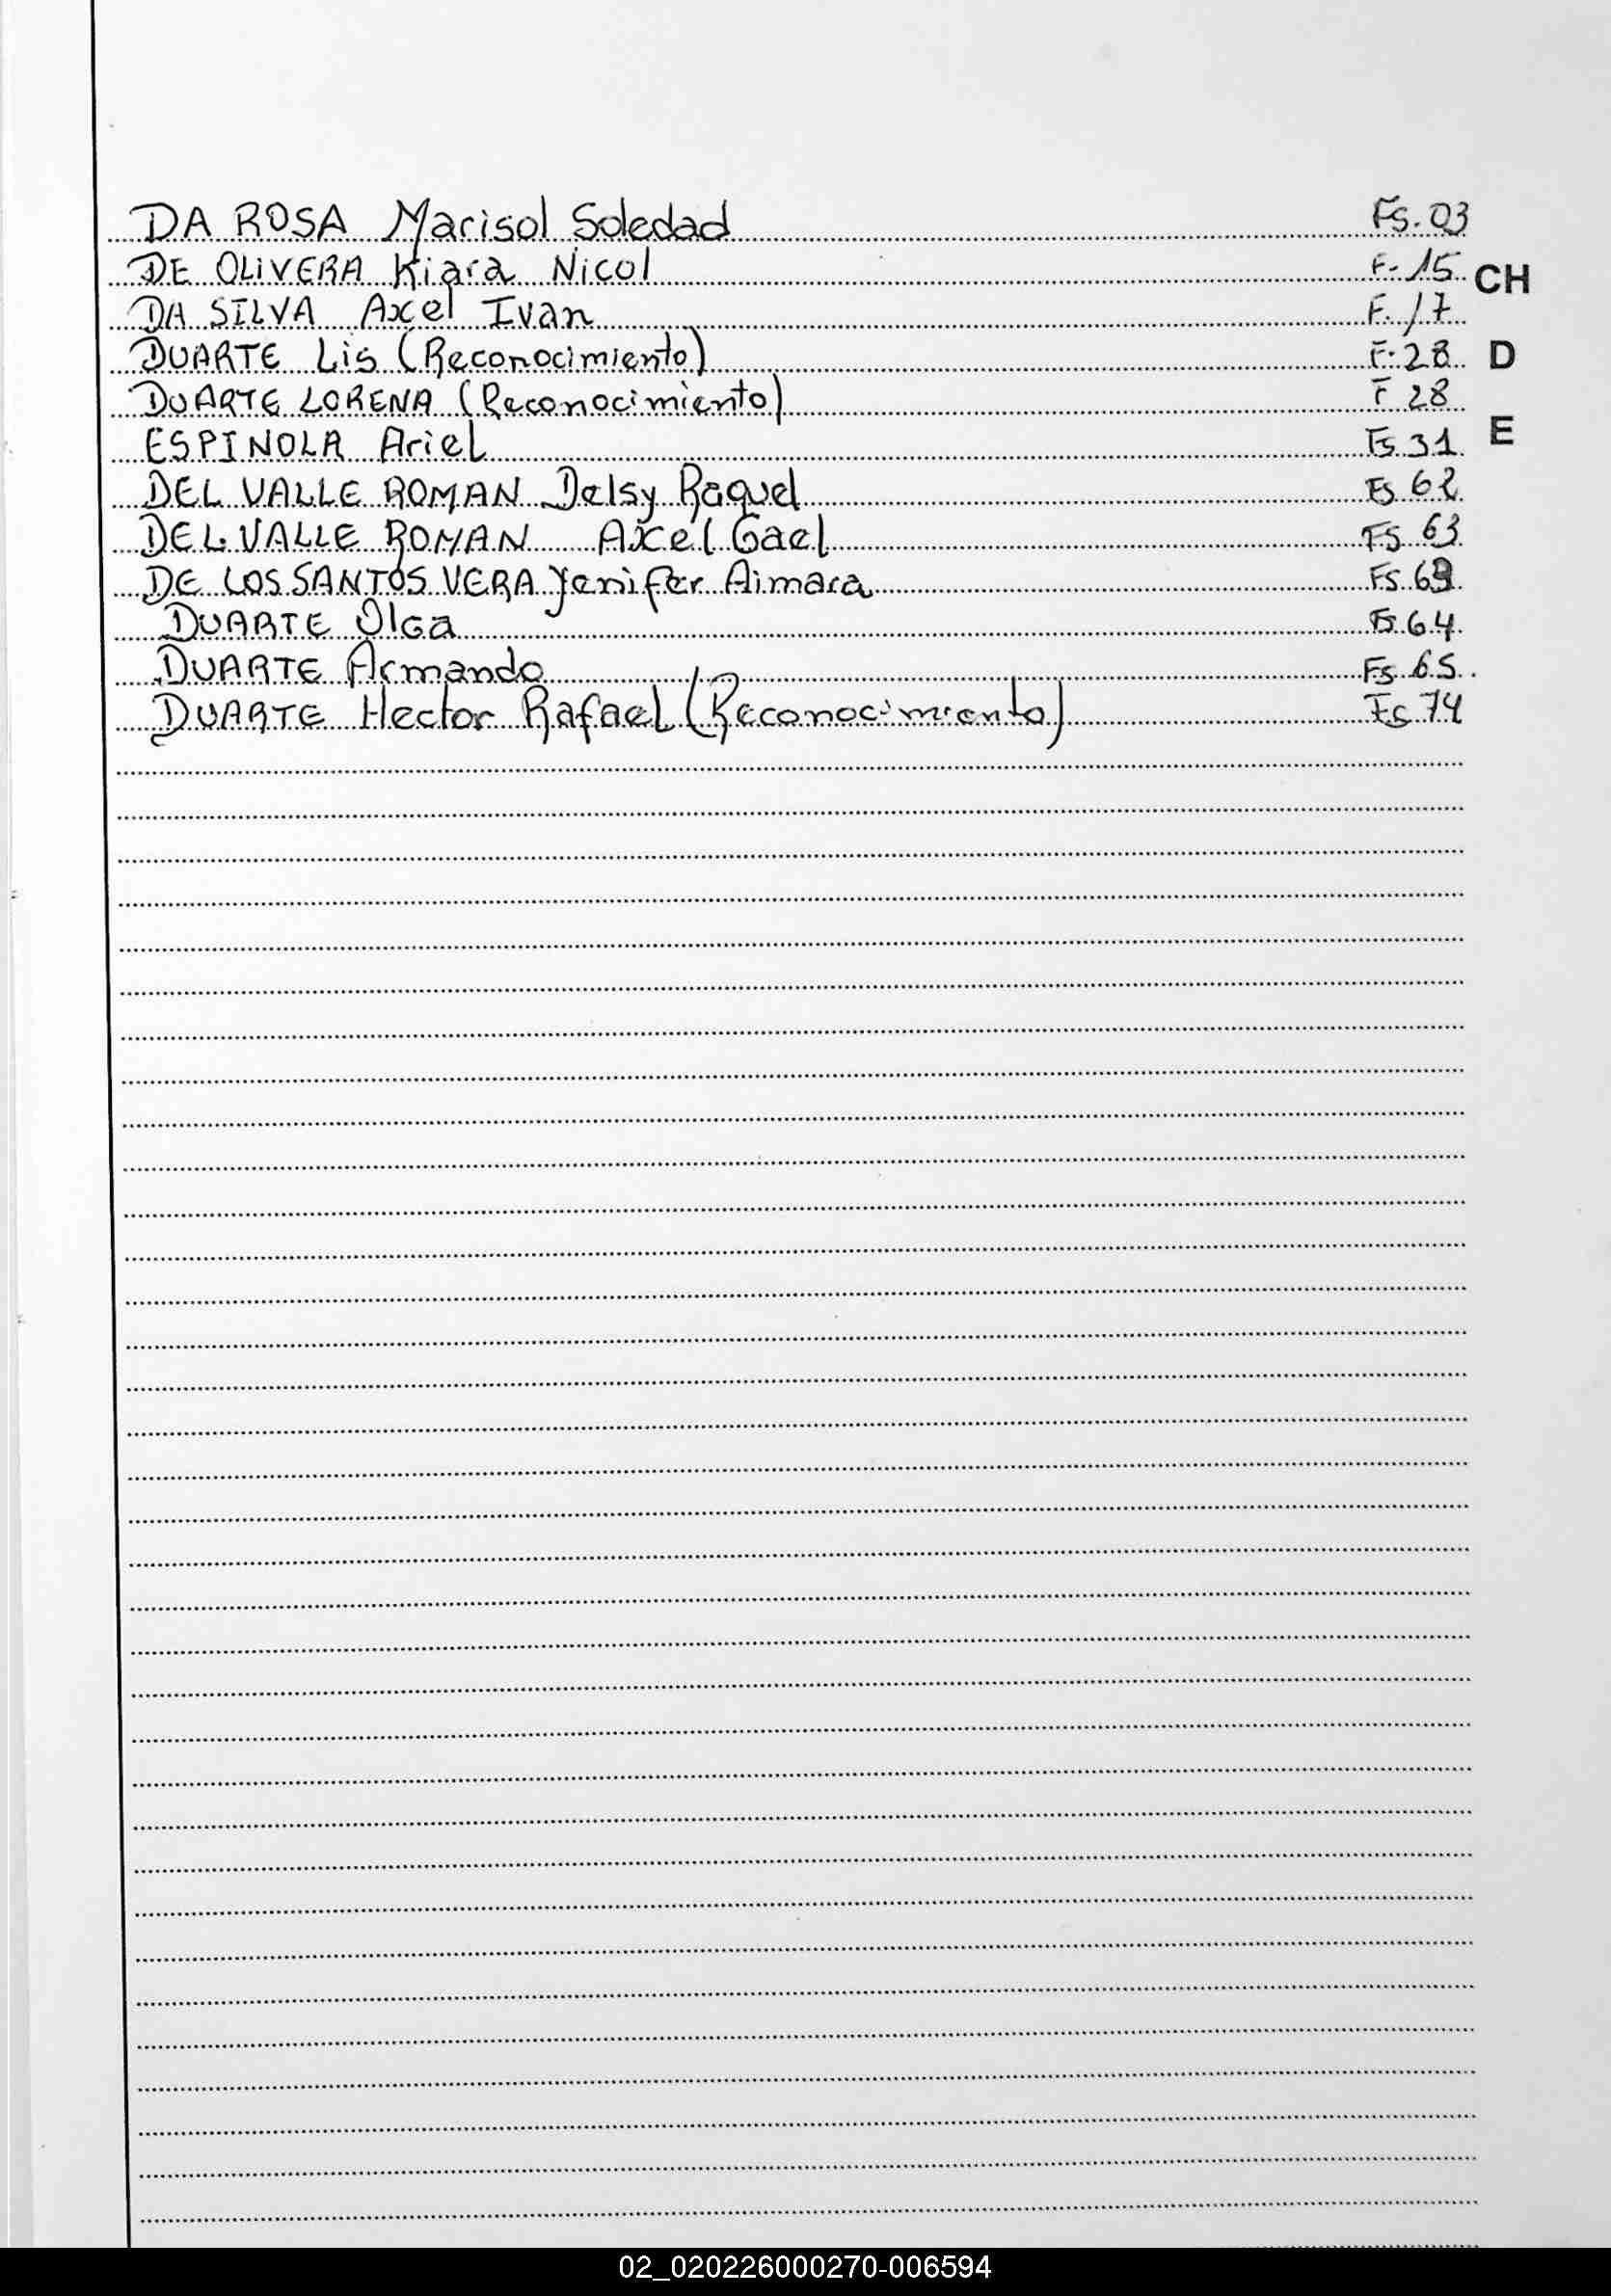 DA ROSA Marisol Soledad Fs. 03
DE OLIVERA Kiara Nicol F. 15
CH
DA SILVA Axel Ivan F. 17
DUARTE Lis (Reconocimiento) F. 28
D
DUARTE LORENA (Reconocimiento) F 28
ESPINOLA Ariel Fs 31
E
DEL VALLE ROMAN Delsy Raquel Fs 62
DEL VALLE ROMAN Axel Gael Fs 63
DE LOS SANTOS VERA Yenifer Aimara Fs
DUARTE Olga Fs 64
DUARTE Armando Fs 65
DUARTE Hector Rafael (Reconocimiento) Fs 74
02_020226000270-006594